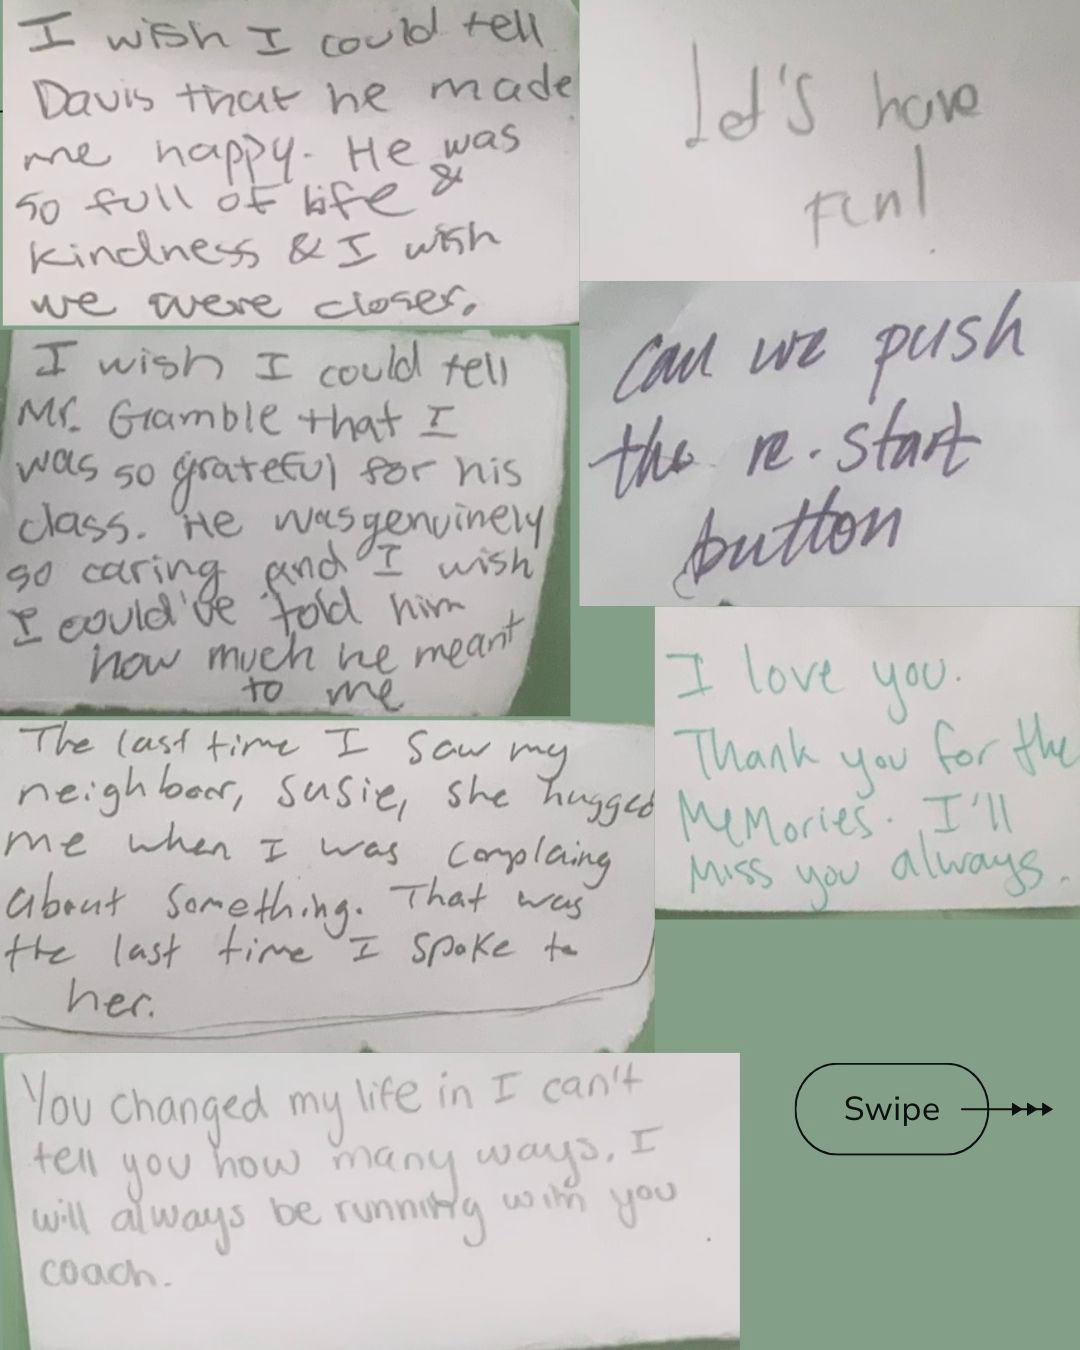 I wish I could tell
Davis that he made
me happy. He was
so full of life &
kindness & I wish
we were closer.
Let's have
fun!
can we push
the re-start
button
I wish I could tell
Mr. Gramble that I
was so grateful for his
class. He was genuinely
so caring and I wish
I could've told him
how much he meant
to me
I love you.
Thank you for the
Memories. I'll
Miss you always.
The last time I saw my
neighboor, Susie, she hugged
me when I was complaing
about something. That was
the last time I spoke to
her.
You changed my life in I can't
tell you how many ways. I
will always be running with you
coach.
Swipe